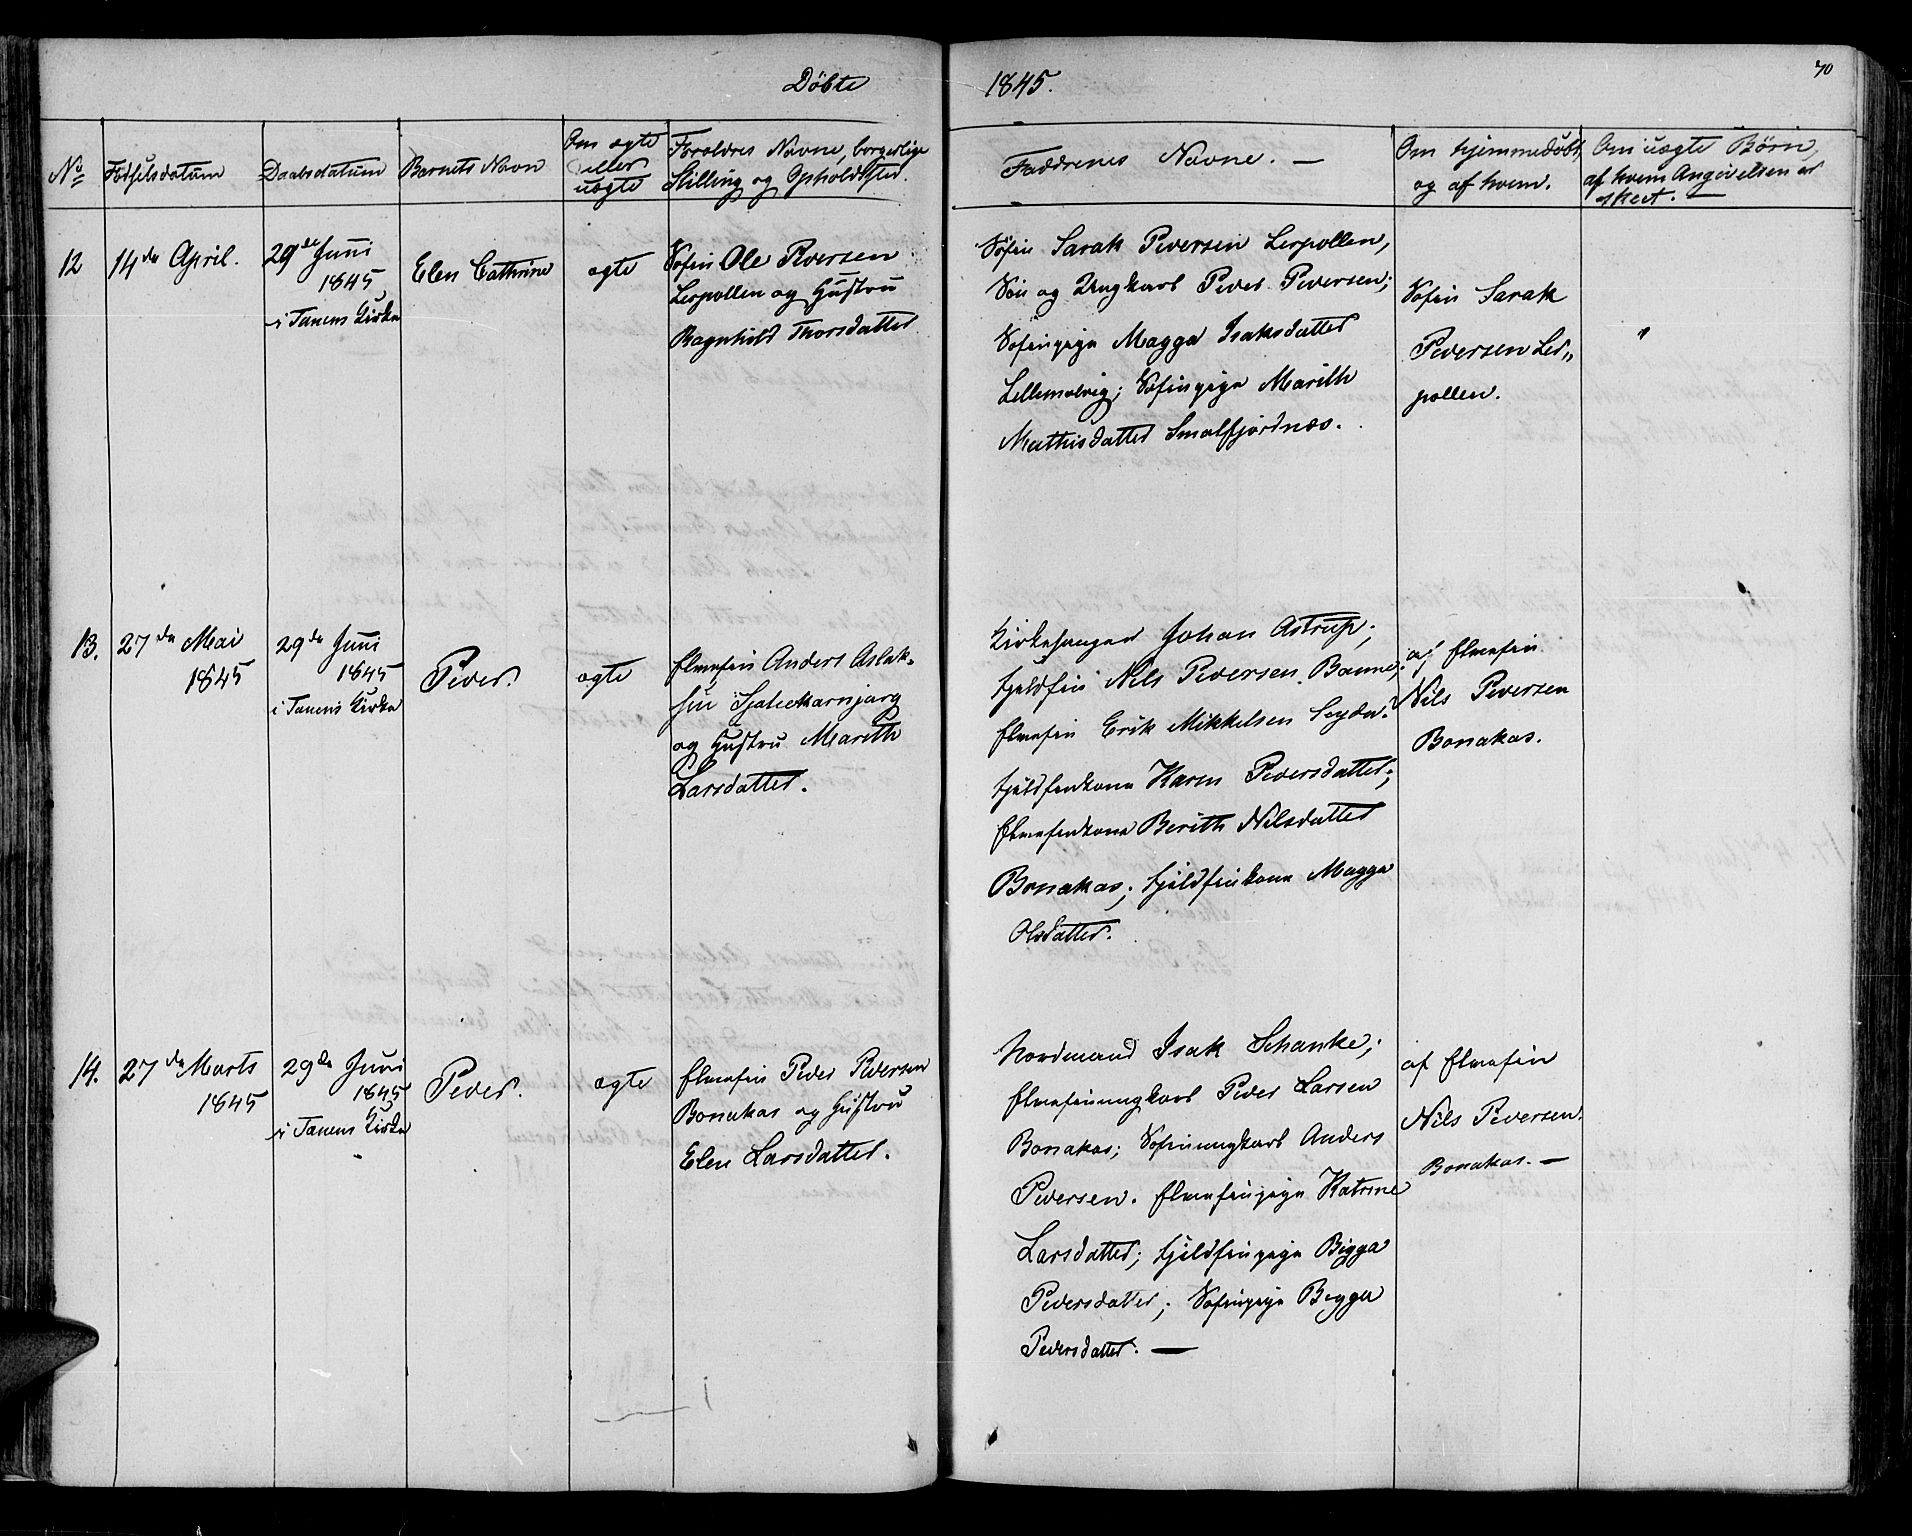 Döbte
1845.
70
No
Fødselsdatum
Daabsdatum
Barnets Navn
Om ægte
eller
uægte
Forældres Navne, borgerlige
Stilling og Opholdssted.
Faddrenes Navne. —
Om hjemmedøbt,
og af hvem.
Om uægte Børn,
af hvem Angivelsen er
skeet. —
12
14de April.
29de Juni
1845
i Tanens Kirke
Elen Cathrine
ægte
Søfin Ole Pedersen
Lerpollen og Hustru
Ragnhild Thorsdatter
Søfin Sarak Pedersen Lerpollen,
Søn og Ungkarl Peder Pedersen;
Søfinpige Magga Isaksdatter
Lillemolvig; Søfinpige Marith
Mathisdatter Smalfjordnæs.
Søfin Sarak
Pedersen Ler„
pollen.
"
13.
27de Mai
1845
29de Juni
1845
i Tanens Kirke
Peder.
ægte
Elvefin Anders Aslak-
sen
og Hustru Marith
Larsdatter.
Kirkesanger Johan Astrup;
Fjeldfin Nils Pedersen Banne;
Elvefin Erik Mikkelsen
Fjeldfinkone Karen Pedersdatter;
Elvefinkone Berith Nilsdatter
Bonakas; Fjeldfinkone Magga
Olsdatter.
af Elvefin
Nils Pedersen
Bonakas.
14.
27de Marts
1845
29de Juni
1845
i Tanens Kirke
Peder.
ægte
Elvefin Peder Pedersen
Bonakas og Hustru
Elen Larsdatter.
Nordmand Isak Schanke;
Elvefinungkarl Peder Larsen
Bonakas; Søfinungkarl Anders
Pedersen. Elvefinpige Katrine
Larsdatter; Fjeldfinpige Bigga
Pedersdatter; Søfinpige Bigga
Pedersdatter. —
af Elvefin
Nils Pedersen
Bonakas. —